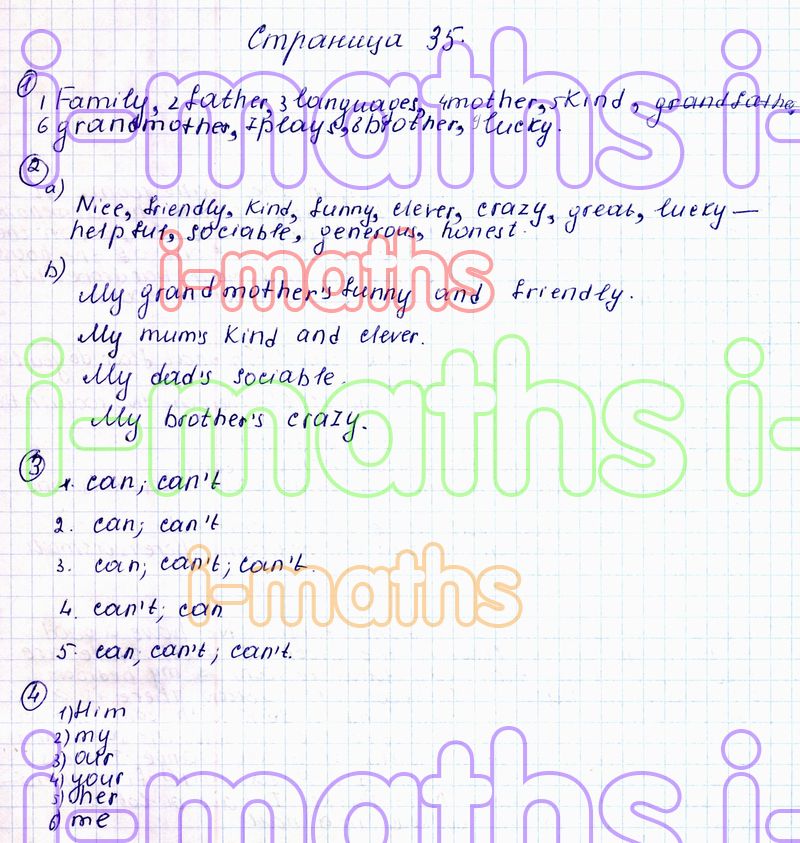 Страница 35.
1
1 Family, 2 father, 3 languages, 4 mother, 5 kind, grandfather,
6 grandmother, 7 plays, 8 brother, 9 lucky.
2
a)
Nice, friendly, kind, funny, clever, crazy, great, lucky —
helpful, sociable, generous, honest.
b)
My grandmother's funny and friendly.
My mum's kind and clever.
My dad's sociable.
My brother's crazy.
3
1. can; can't
2. can; can't
3. can; can't; can't.
4. can't; can
5. can, can't; can't.
4
1) Him
2) my
3) our
4) your
5) her
6) me
i-maths i
i-maths
i-maths i
i-maths
i-maths i